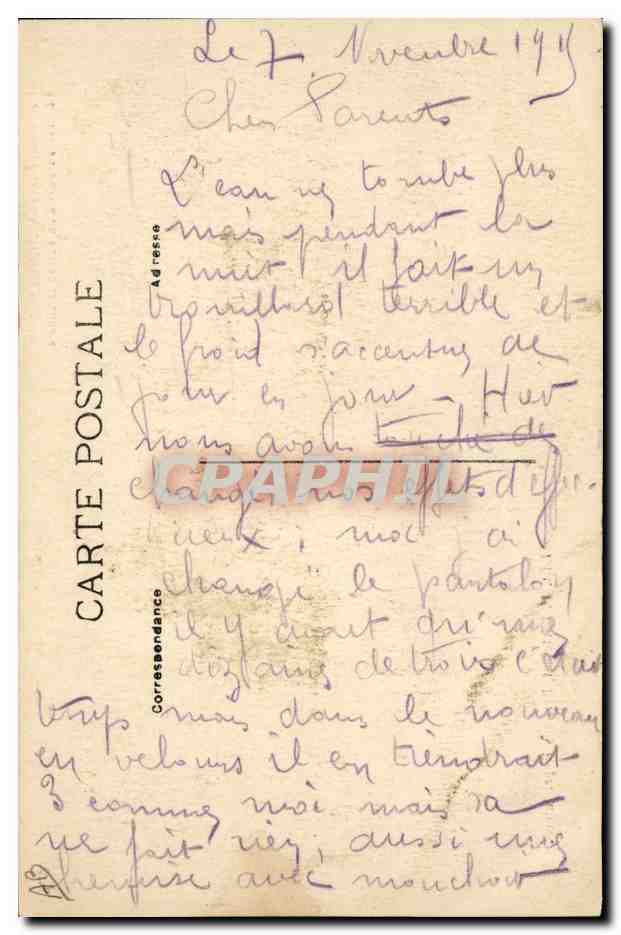 Le 7 Novembre 1915
Chers Parents
L'eau ne tombe plus
mais pendant la
nuit il fait un
brouillard terrible et
le froid s'accentue de
jour en jour - Hier
nous avons touché des
changé nos effets
moi j'ai
changé le pantalon
il y avait qu'une
dizaine de trois c'était
trop mais dans le nouveau
en velours il en tiendrait
3 comme moi mais sa
ne fait rien, aussi une
chemise avec mouchoir
CARTE POSTALE
Correspondance
Adresse
CPAPHIL
AB